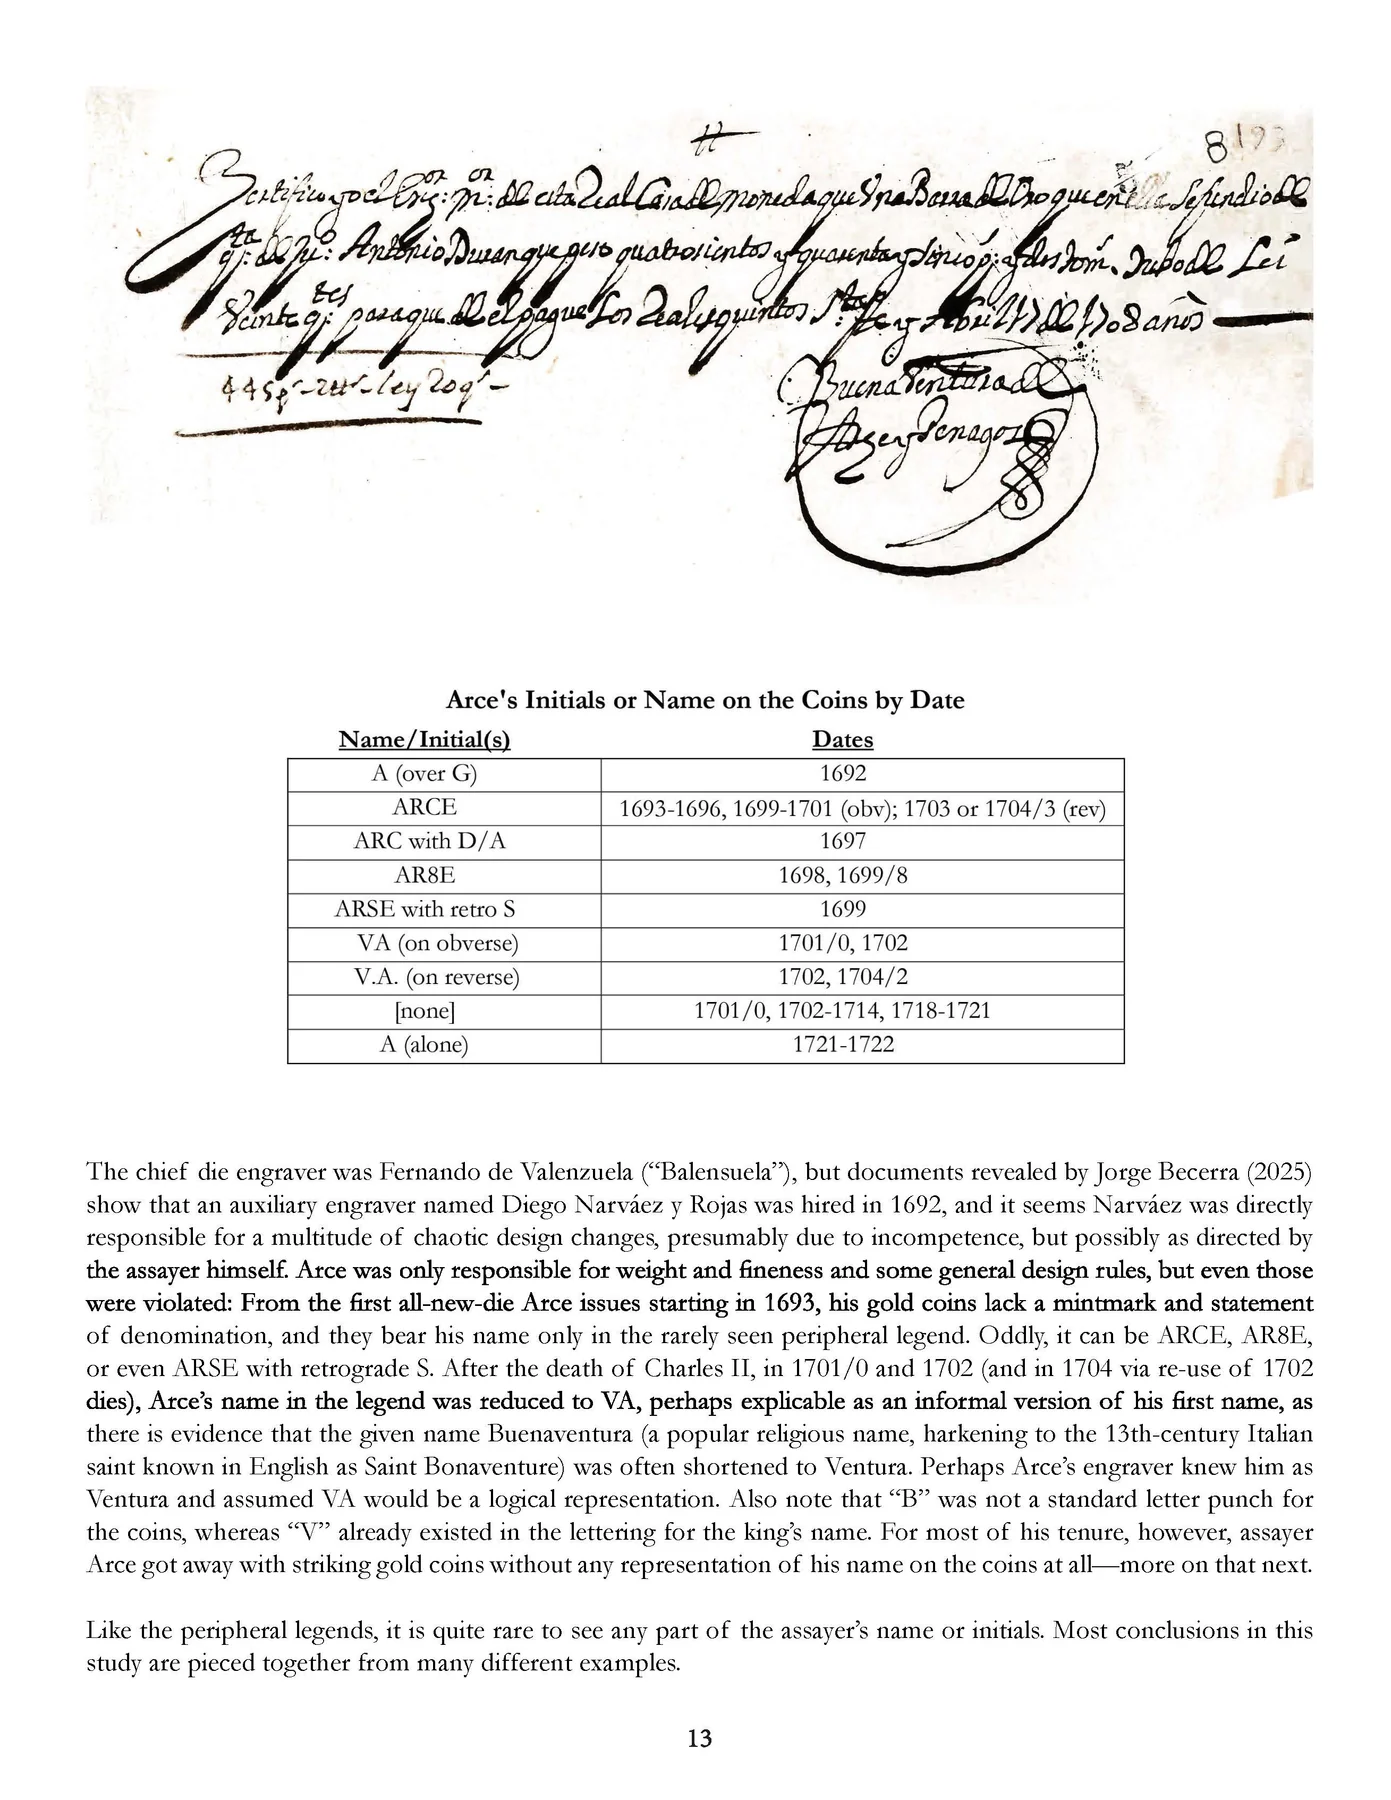 8193
Zertifico yo el Enz.or m.or de esta Real Casa de Moneda que Una Barra de Oro que en ella Se fundio de
q.ta de Ju.o Antonio Duran que peso quatrosientos y quarenta y Sinco p.s y dos tom.s Tubo de Lei
Veinte q.tes para que de el pague Los Reales quintos S.ta fe y Abril 17 de 1708 años
445 p.s - 2 tt.s - ley 20 q.s -
Buena Ventura de
Arze y Penagos
Arce's Initials or Name on the Coins by Date
Name/Initial(s) Dates
A (over G) 1692
ARCE 1693-1696, 1699-1701 (obv); 1703 or 1704/3 (rev)
ARC with D/A 1697
AR8E 1698, 1699/8
ARSE with retro S 1699
VA (on obverse) 1701/0, 1702
V.A. (on reverse) 1702, 1704/2
[none] 1701/0, 1702-1714, 1718-1721
A (alone) 1721-1722
The chief die engraver was Fernando de Valenzuela (“Balensuela”), but documents revealed by Jorge Becerra (2025)
show that an auxiliary engraver named Diego Narváez y Rojas was hired in 1692, and it seems Narváez was directly
responsible for a multitude of chaotic design changes, presumably due to incompetence, but possibly as directed by
the assayer himself. Arce was only responsible for weight and fineness and some general design rules, but even those
were violated: From the first all-new-die Arce issues starting in 1693, his gold coins lack a mintmark and statement
of denomination, and they bear his name only in the rarely seen peripheral legend. Oddly, it can be ARCE, AR8E,
or even ARSE with retrograde S. After the death of Charles II, in 1701/0 and 1702 (and in 1704 via re-use of 1702
dies), Arce’s name in the legend was reduced to VA, perhaps explicable as an informal version of his first name, as
there is evidence that the given name Buenaventura (a popular religious name, harkening to the 13th-century Italian
saint known in English as Saint Bonaventure) was often shortened to Ventura. Perhaps Arce’s engraver knew him as
Ventura and assumed VA would be a logical representation. Also note that “B” was not a standard letter punch for
the coins, whereas “V” already existed in the lettering for the king’s name. For most of his tenure, however, assayer
Arce got away with striking gold coins without any representation of his name on the coins at all—more on that next.
Like the peripheral legends, it is quite rare to see any part of the assayer’s name or initials. Most conclusions in this
study are pieced together from many different examples.
13